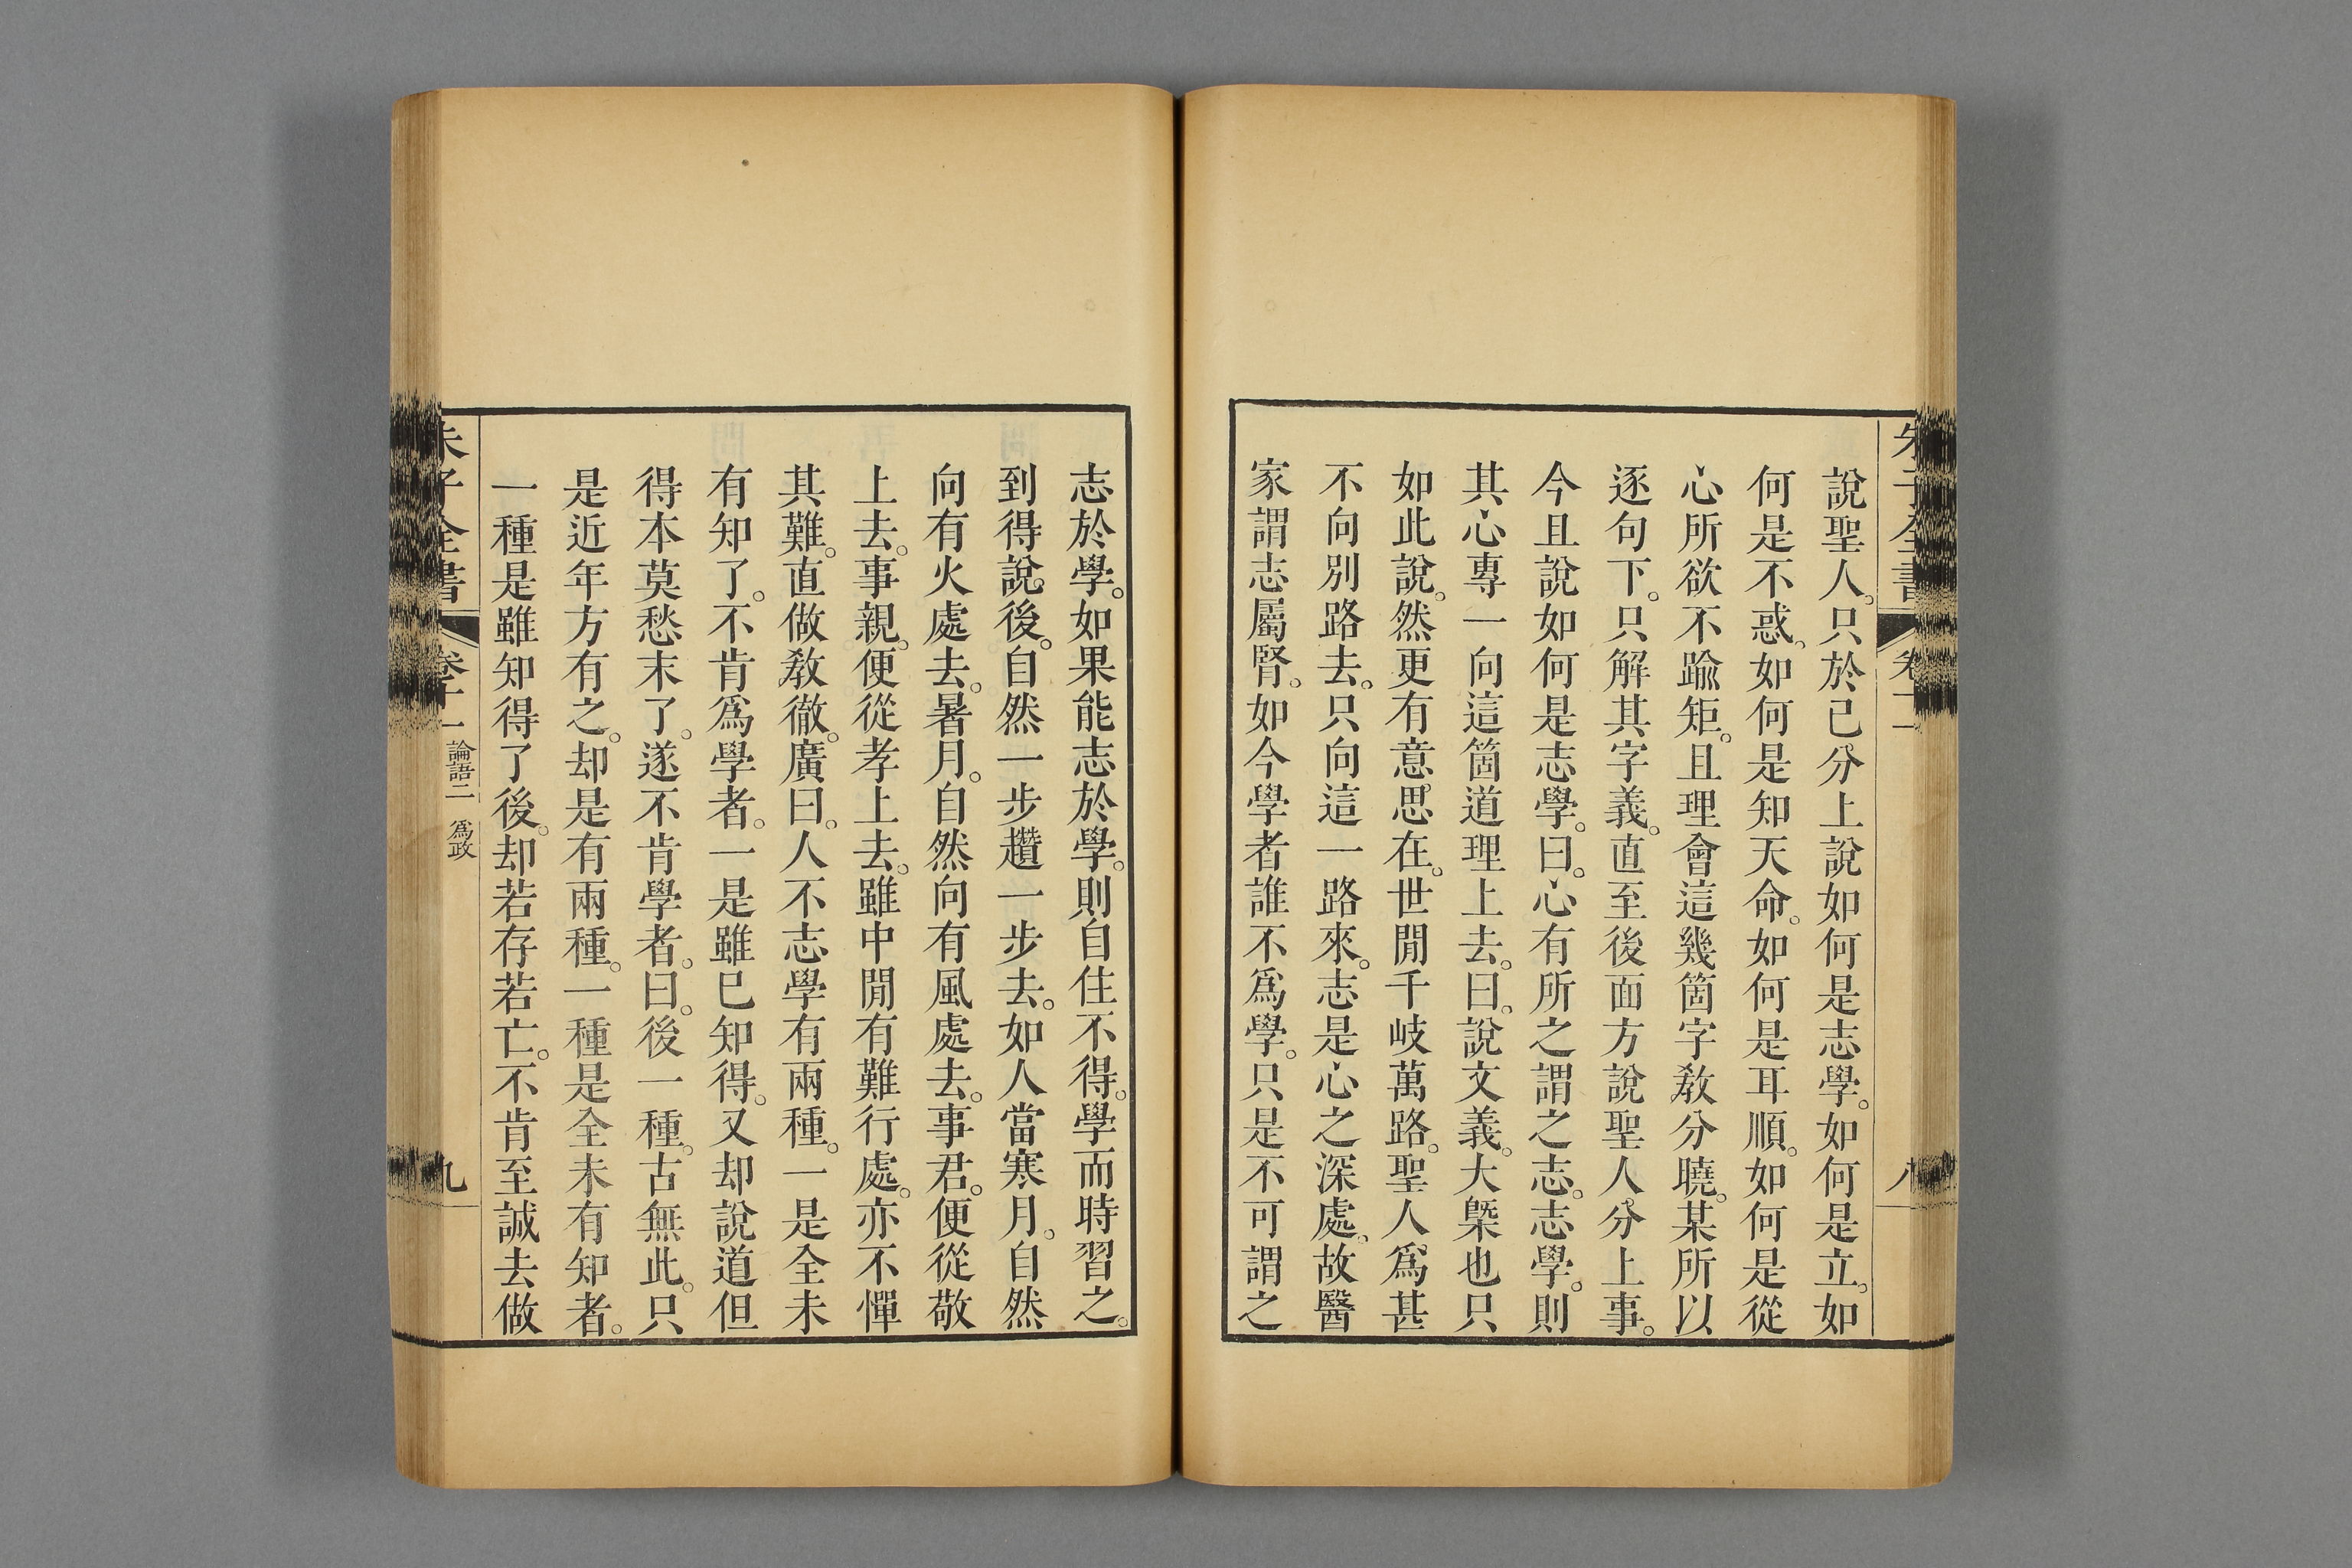 說聖人。只於己分上說如何是志學。如何是立。如
何是不惑。如何是知天命。如何是耳順。如何是從
心所欲不踰矩。且理會這幾箇字教分曉。某所以
逐句下。只解其字義。直至後面方說聖人分上事。
今且說如何是志學。曰。心有所之謂之志。志學。則
其心專一向這箇道理上去。曰。說文義。大槩也只
如此說。然更有意思在。世閒千岐萬路。聖人爲甚
不向別路去。只向這一路來。志是心之深處。故醫
家謂志屬腎。如今學者誰不爲學。只是不可謂之
志於學。如果能志於學。則自住不得。學而時習之。
到得說後。自然一步趲一步去。如人當寒月。自然
向有火處去。暑月。自然向有風處去。事君。便從敬
上去。事親。便從孝上去。雖中閒有難行處。亦不憚
其難。直做教徹。廣曰。人不志學有兩種。一是全未
有知了。不肯爲學者。一是雖已知得。又却說道但
得本莫愁末了。遂不肯學者。曰。後一種。古無此。只
是近年方有之。却是有兩種。一種是全未有知者。
一種是雖知得了後。却若存若亡。不肯至誠去做
朱子全書
卷十一
論語二 爲政
九